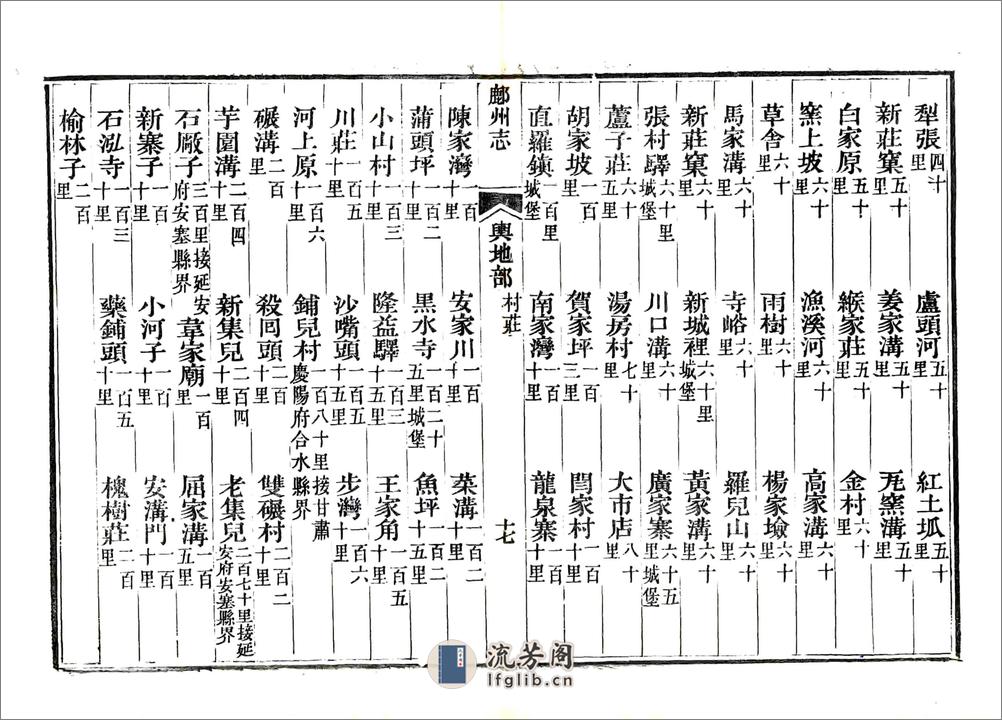 犁張四十里　盧頭河五十里　紅土坬五十里
新莊窠五十里　姜家溝五十里　瓦窯溝五十里
白家原五十里　緱家莊五十里　金村六十里
窯上坡六十里　漁溪河六十里　高家溝六十里
草舎六十里　雨樹六十里　楊家塬六十里
馬家溝六十里　寺峪六十里　羅兒山六十里
新莊窠六十里　新城裡六十里城堡　黃家溝六十里
張村驛六十里城堡　川口溝六十里　廣家寨六十五里城堡
蘆子莊六十五里　湯房村七十里　大市店八十里
胡家坡一百里　賀家坪一百三里　閆家村一百十里
直羅鎮一百里城堡　南家灣一百十里　龍泉寨一百十里
鄜州志　輿地部　村莊　十七
陳家灣一百十里　安家川一百十里　菜溝一百二十里
蒲頭坪一百二十里　黑水寺一百二十五里城堡　魚坪一百二十五里
小山村一百三十里　隆益驛一百三十五里　王家角一百五十里
川莊一百五十里　沙嘴頭一百五十五里　步灣一百六十里
河上原一百六十里　鋪兒村一百八十里接甘肅慶陽府合水縣界
碾溝二百里　殺回頭二百十里　雙碾村二百二十里
芋園溝二百四十里　新集兒二百四十里　老集兒二百七十里接延安府安塞縣界
石厰子三百里接延安府安塞縣界　韋家廟一百里　屈家溝一百五里
新寨子一百十里　小河子一百十里　安溝門一百十里
石泓寺一百三十里　藥鋪頭一百五十里　槐樹莊二百里
榆林子二百里
流芳阁
lfglib.cn